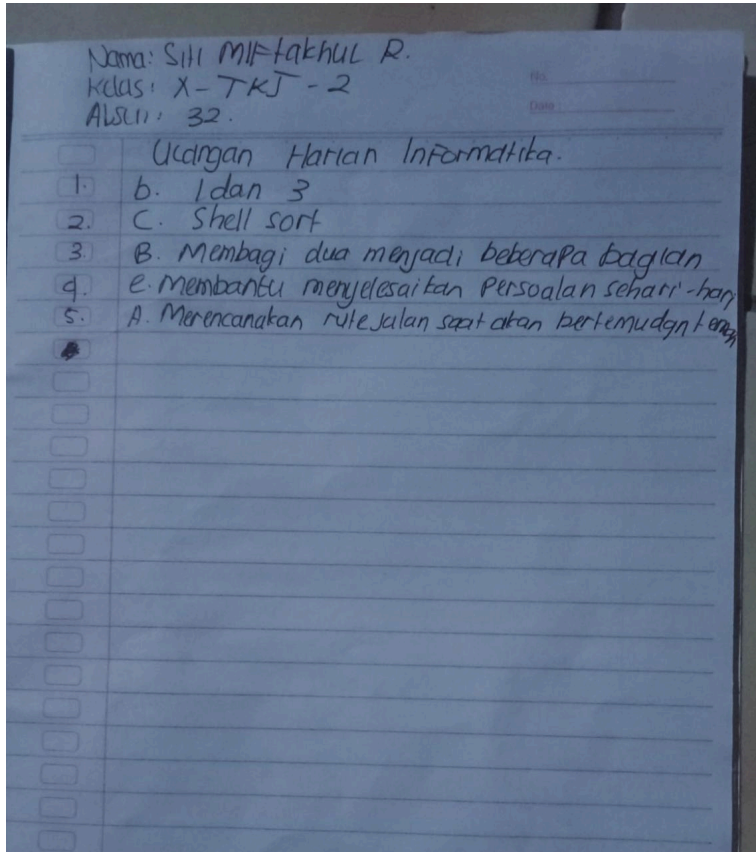 Nama: Siti Miftakhul R.
Kelas: X - TKJ - 2
Absen: 32.
No
Date
Ulangan Harian Informatika.
1. b. 1 dan 3
2. C. Shell sort
3. B. Membagi dua menjadi beberapa bagian
4. e. Membantu menyelesaikan Persoalan sehari-hari
5. A. Merencanakan rute jalan saat akan bertemu dgn teman